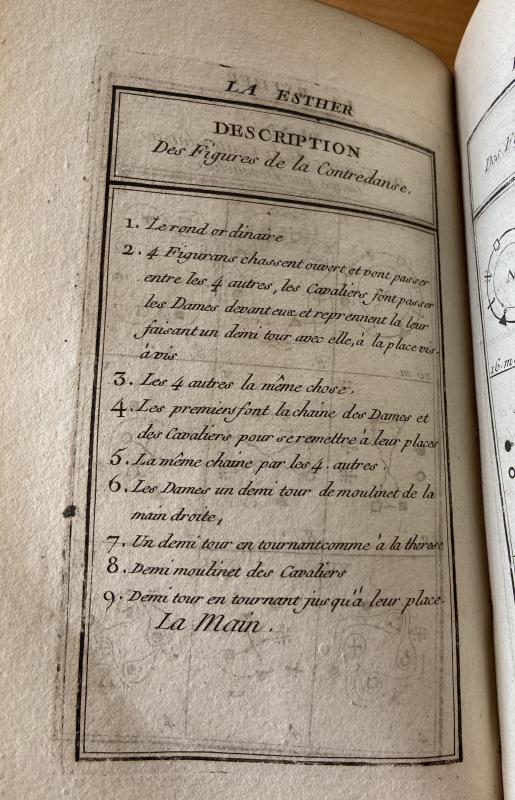 LA ESTHER
DESCRIPTION
Des Figures de la Contredanse.
1. Le rond ordinaire
2. 4 Figurans chassent ouvert et vont passer
entre les 4 autres, les Cavaliers font passer
les Dames devant eux et reprennent la leur
faisant un demi tour avec elle, à la place vis-
à vis
3. Les 4 autres la même chose.
4. Les premiers font la chaine des Dames et
des Cavaliers pour se remettre à leur places
5. La même chaine par les 4. autres.
6. Les Dames un demi tour de moulinet de la
main droite,
7. Un demi tour en tournant comme à la therese
8. Demi moulinet des Cavaliers
9. Demi tour en tournant jusqu'à leur place.
La Main.
Des Fi
N
16. m